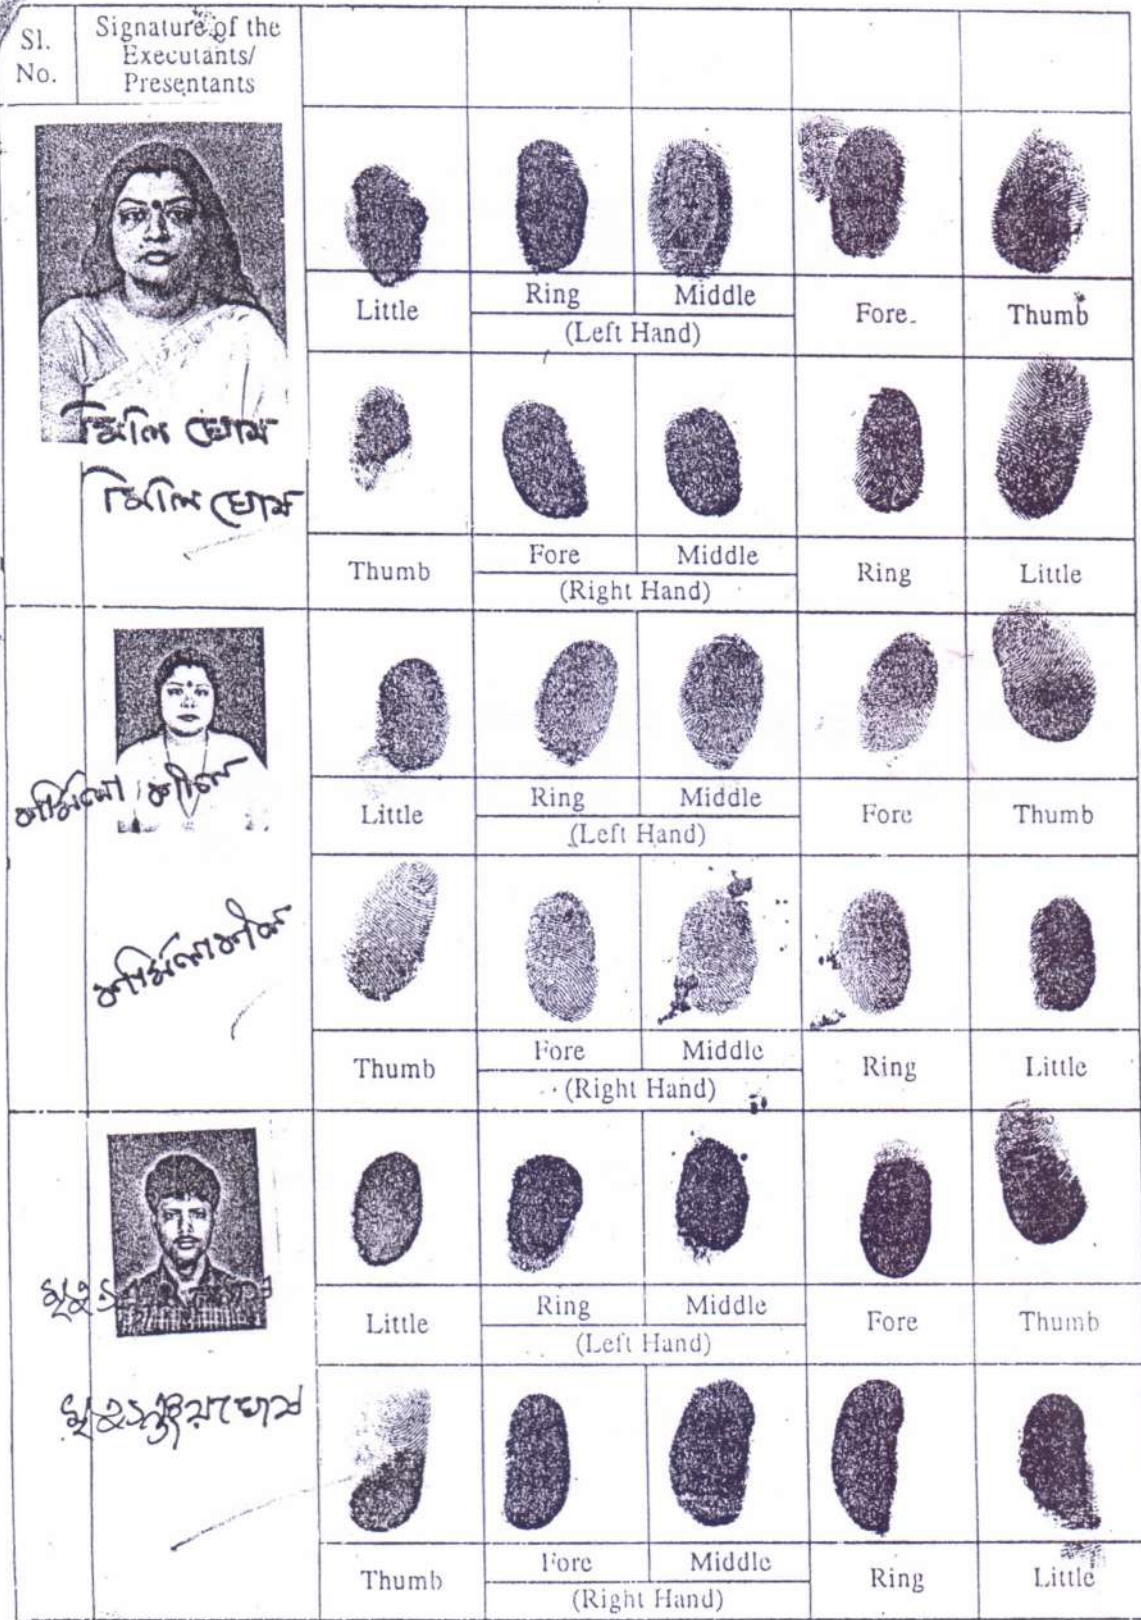 Sl.
No.
Signature of the
Executants/
Presentants
Little
Ring
Middle
Fore
Thumb
(Left Hand)
মিলি ঘোষ
মিলি ঘোষ
Thumb
Fore
Middle
Ring
Little
(Right Hand)
শর্মিলা
Little
Ring
Middle
Fore
Thumb
(Left Hand)
শর্মিলা
Thumb
Fore
Middle
Ring
Little
(Right Hand)
Little
Ring
Middle
Fore
Thumb
(Left Hand)
মৃত্যুঞ্জয় ঘোষ
Thumb
Fore
Middle
Ring
Little
(Right Hand)